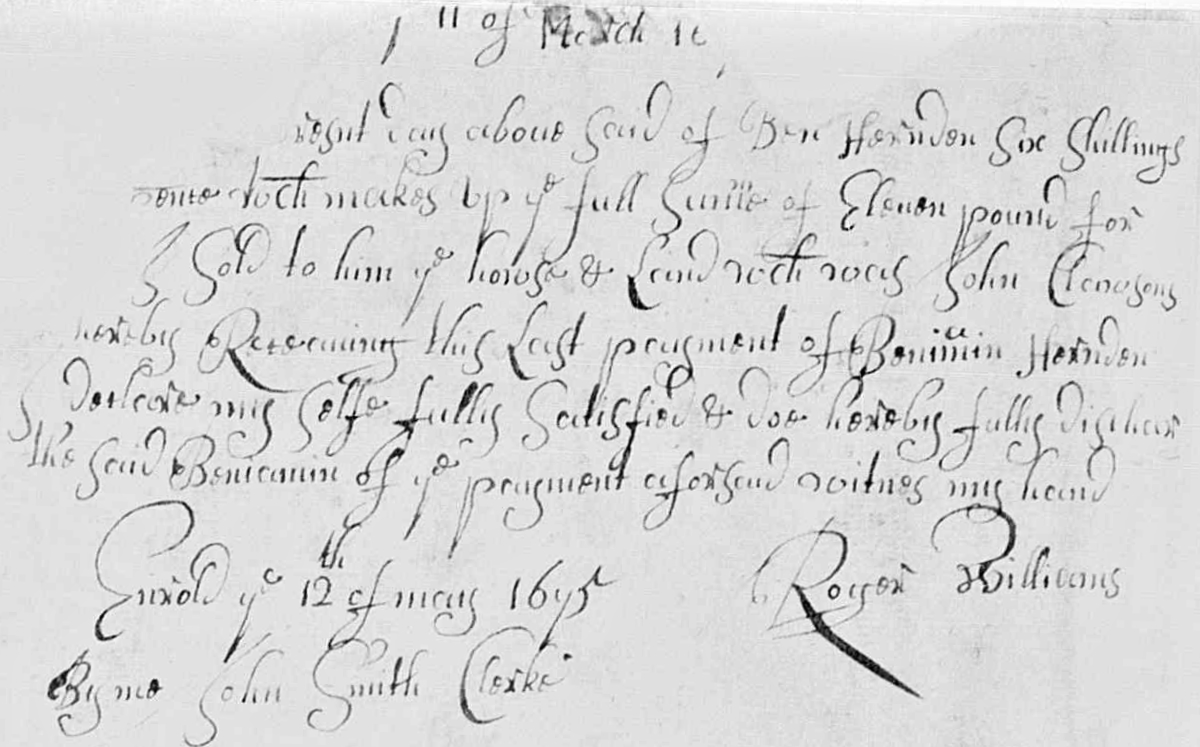 11 of March
day aboue said of Ben Hernden six shillings
wch makes vp ye full summe of Eleuen pound for
I sold to him ye howse & Land wch was John Clawsons
hereby Receauing this Last payment of Beniamin Hernden
I declare my selfe fully satisfied & doe hereby fully dischar
the said Beniamin of ye payment aforsaid witnes my hand
Roger Williams
Enrold ye 12th of may
By me John Smith Clerke